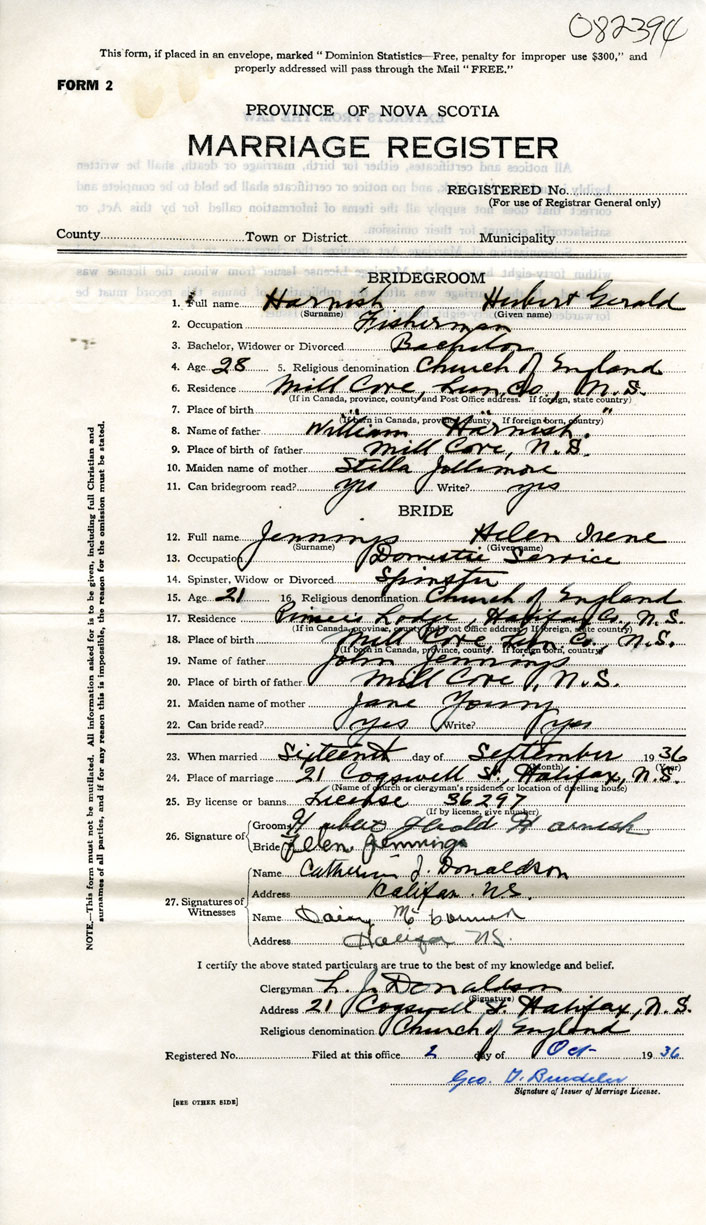 082394
This form, if placed in an envelope, marked "Dominion Statistics—Free, penalty for improper use $300," and
properly addressed will pass through the Mail "FREE."
FORM 2
PROVINCE OF NOVA SCOTIA
MARRIAGE REGISTER
REGISTERED No.
(For use of Registrar General only)
County Town or District Municipality
BRIDEGROOM
1. Full name Harnish Herbert Gerald
(Surname) (Given name)
2. Occupation Fisherman
3. Bachelor, Widower or Divorced Bachelor
4. Age 28 5. Religious denomination Church of England
6. Residence Mill Cove, Lun. Co., N.S.
(If in Canada, province, county and Post Office address. If foreign, state country)
7. Place of birth " " "
(If born in Canada, province, county. If foreign born, country)
8. Name of father William Harnish
9. Place of birth of father Mill Cove, N.S.
10. Maiden name of mother Stella Jollimore
11. Can bridegroom read? yes Write? yes
BRIDE
12. Full name Jennings Helen Irene
(Surname) (Given name)
13. Occupation Domestic Service
14. Spinster, Widow or Divorced Spinster
15. Age 21 16. Religious denomination Church of England
17. Residence Lodge, Halifax Co., N.S.
(If in Canada, province, county and Post Office address. If foreign, state country)
18. Place of birth Mill Cove Lun. Co., N.S.
(If born in Canada, province, county. If foreign born, country)
19. Name of father John Jennings
20. Place of birth of father Mill Cove, N.S.
21. Maiden name of mother Jane Young
22. Can bride read? yes Write? yes
23. When married Sixteenth day of September 1936
(Month) (Year)
24. Place of marriage 21 Cogswell St., Halifax, N.S.
(Name of church or clergyman's residence or location of dwelling house)
25. By license or banns License 36297
(If by license, give number)
26. Signature of Groom Herbert Gerald Harnish
Bride Helen Jennings
27. Signatures of Witnesses
Name Catherine J. Donaldson
Address Halifax N.S.
Name Daisy
Address Halifax NS.
I certify the above stated particulars are true to the best of my knowledge and belief.
Clergyman L. J. Donaldson
(Signature)
Address 21 Cogswell St. Halifax, N.S.
Religious denomination Church of England
Registered No. Filed at this office 2 day of Oct 1936
Geo.
Signature of Issuer of Marriage License.
[SEE OTHER SIDE]
NOTE.—This form must not be mutilated. All information asked for is to be given, including full Christian and
surnames of all parties, and if for any reason this is impossible, the reason for the omission must be stated.